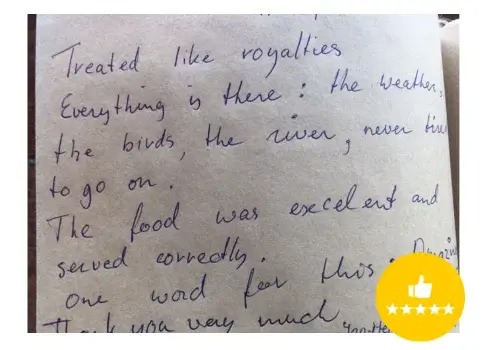 Treated like royalties
Everything is there : the weather,
the birds, the river, never time
to go on.
The food was excelent and
served correctly.
one word for this :
Thank you very much